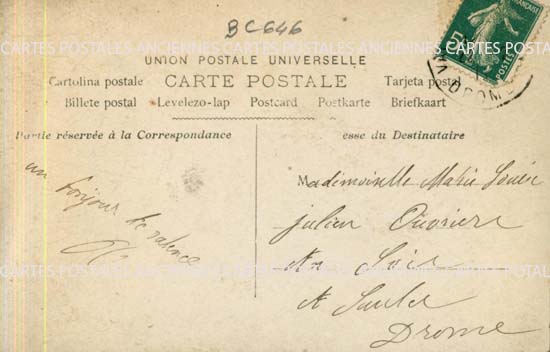 BC646
CARTES POSTALES ANCIENNES CARTES POSTALES ANCIENNES CARTES POSTALES
UNION POSTALE UNIVERSELLE
Cartolina postale CARTE POSTALE Tarjeta postal
Billete postal Levelezo-lap Postcard Postkarte Briefkaart
Partie réservée à la Correspondance
esse du Destinataire
un bonjour de valence
Mademoiselle Marie Louise
julien Ouvrière
En Soie
A Saulce
Drome